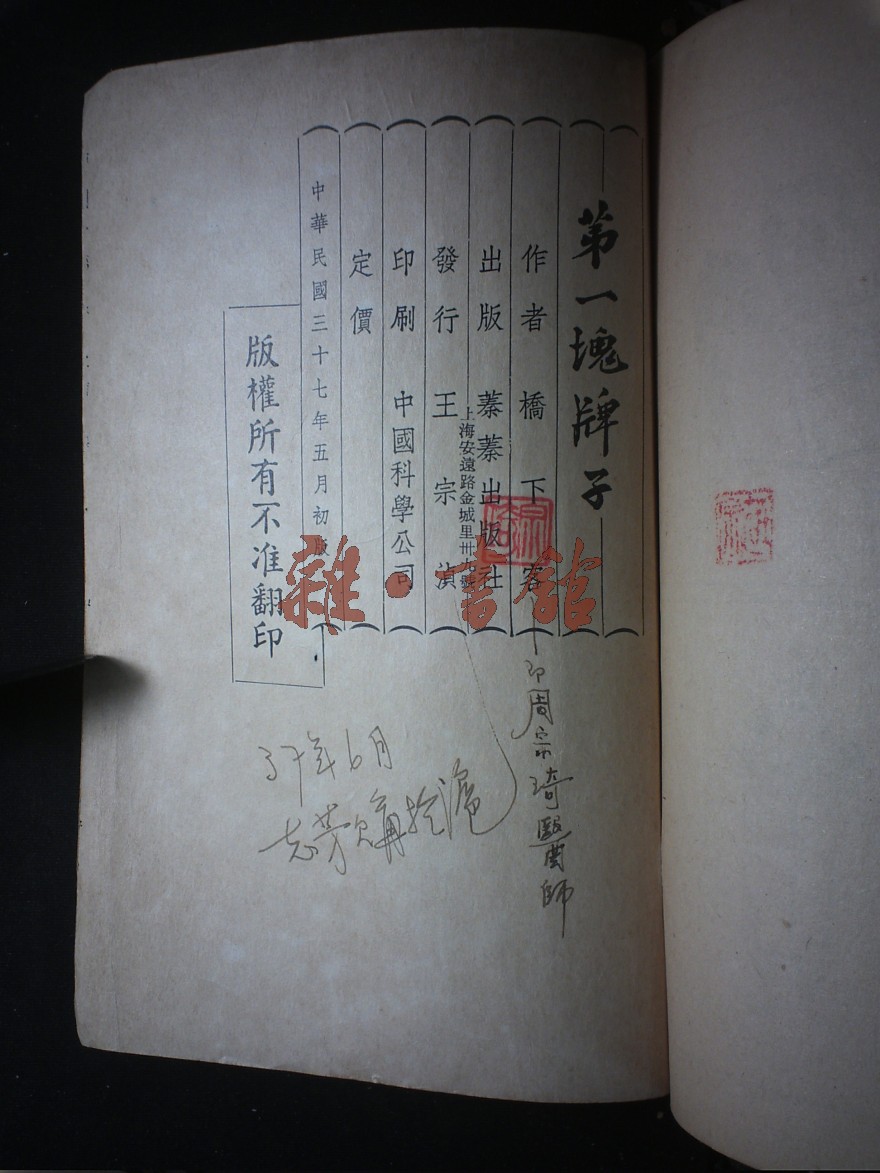 第一塊牌子
作者 橋下客
出版 蓁蓁出版社
上海安遠路金城里卅號
發行 王宗濆
印刷 中國科學公司
定價
中華民國三十七年五月初版
版權所有不准翻印
即周宗琦醫師
37年6月
志芳購於滬
雜·書館